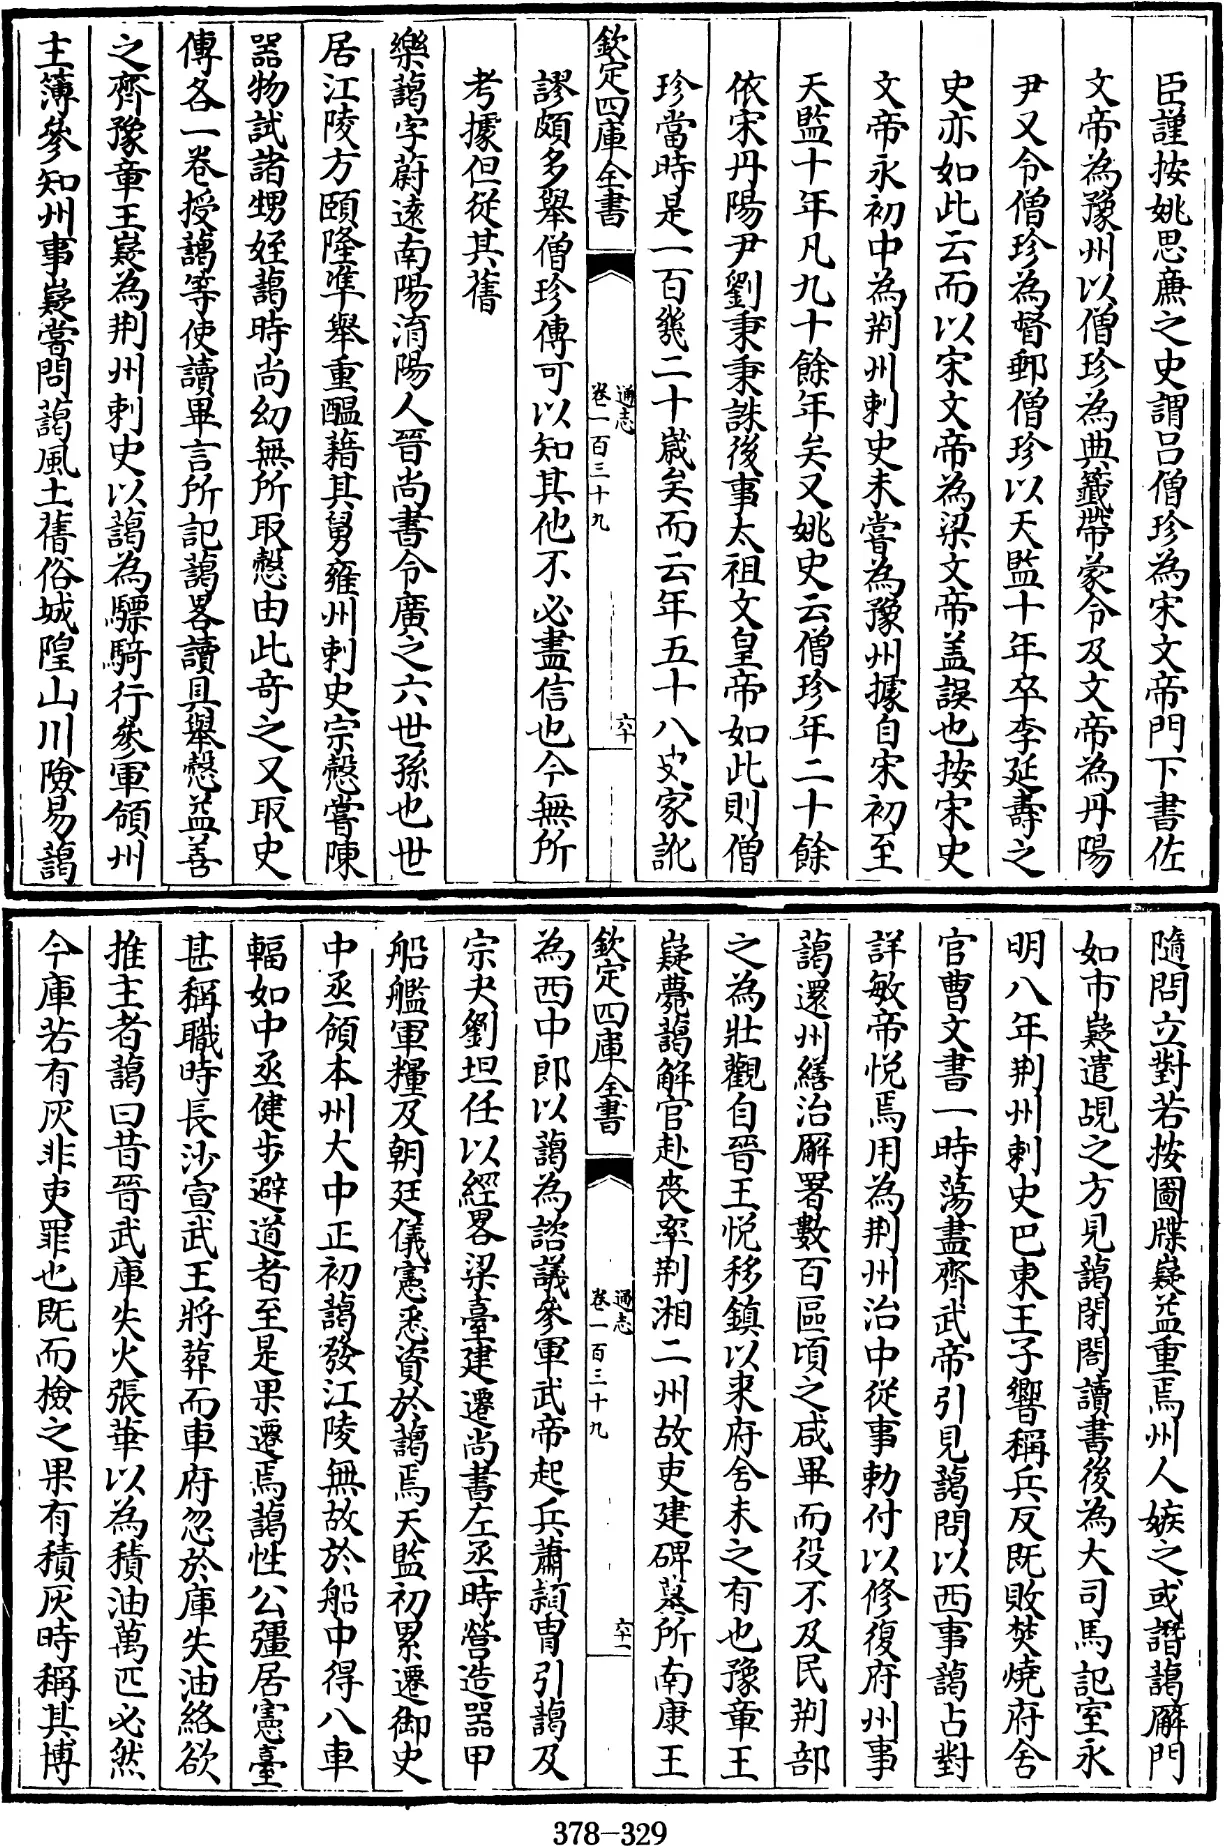 臣謹按姚思亷之史謂吕僧珍為宋文帝門下書佐
文帝為豫州以僧珍為典籖帶蒙令及文帝為丹陽
尹又令僧珍為督郵僧珍以天監十年卒李延壽之
史亦如此云而以宋文帝為梁文帝盖誤也按宋史
文帝永初中為荆州刺史未嘗為豫州據自宋初至
天監十年凡九十餘年矣又姚史云僧珍年二十餘
依宋丹陽尹劉秉秉誅後事太祖文皇帝如此則僧
珍當時是一百幾二十嵗矣而云年五十八史家訛
欽定四庫全書
通志
卷一百三十九
六十
謬頗多舉僧珍傳可以知其他不必盡信也今無所
考據但從其舊
樂藹字蔚逺南陽淯陽人晉尚書令廣之六世孫也世
居江陵方頤隆凖舉重醖藉其舅雍州刺史宗慤嘗陳
器物試諸甥姪藹時尚幼無所取慤由此奇之又取史
傳各一卷授藹等使讀畢言所記藹畧讀具舉慤益善
之齊豫章王嶷為荆州刺史以藹為驃騎行參軍領州
主簿參知州事嶷嘗問藹風土舊俗城隍山川險易藹
隨問立對若按圖牒嶷益重焉州人嫉之或譖藹廨門
如市嶷遣覘之方見藹閉閤讀書後為大司馬記室永
明八年荆州刺史巴東王子響稱兵反既敗焚燒府舍
官曹文書一時蕩盡齊武帝引見藹問以西事藹占對
詳敏帝悦焉用為荆州治中從事勅付以修復府州事
藹還州繕治廨署數百區頃之咸畢而役不及民荆部
之為壯觀自晉王悦移鎮以来府舍未之有也豫章王
嶷薨藹解官赴喪率荆湘二州故吏建碑墓所南康王
欽定四庫全書
通志
卷一百三十九
六十一
為西中郎以藹為諮議參軍武帝起兵蕭頴胄引藹及
宗夬劉坦任以經畧梁臺建遷尚書左丞時營造器甲
船艦軍糧及朝廷儀憲悉資於藹焉天監初累遷御史
中丞領本州大中正初藹發江陵無故於船中得八車
輻如中丞健步避道者至是果遷焉藹性公彊居憲臺
甚稱職時長沙宣武王將葬而車府忽於庫失油絡欲
推主者藹曰昔晉武庫失火張華以為積油萬匹必然
今庫若有灰非吏罪也既而檢之果有積灰時稱其博
378-329